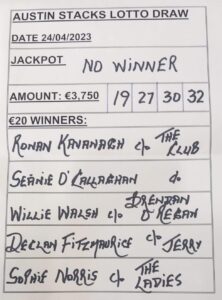 AUSTIN STACKS LOTTO DRAW
DATE 24/04/2023
JACKPOT NO WINNER
AMOUNT: €3,750 19 27 30 32
€20 WINNERS:
RONAN KAVANAGH c/o THE CLUB
SEANIE O'CALLAGHAN c/o
WILLIE WALSH c/o BRENDAN O'REGAN
DECLAN FITZMAURICE c/o JERRY
SOPHIE NORRIS c/o THE LADIES